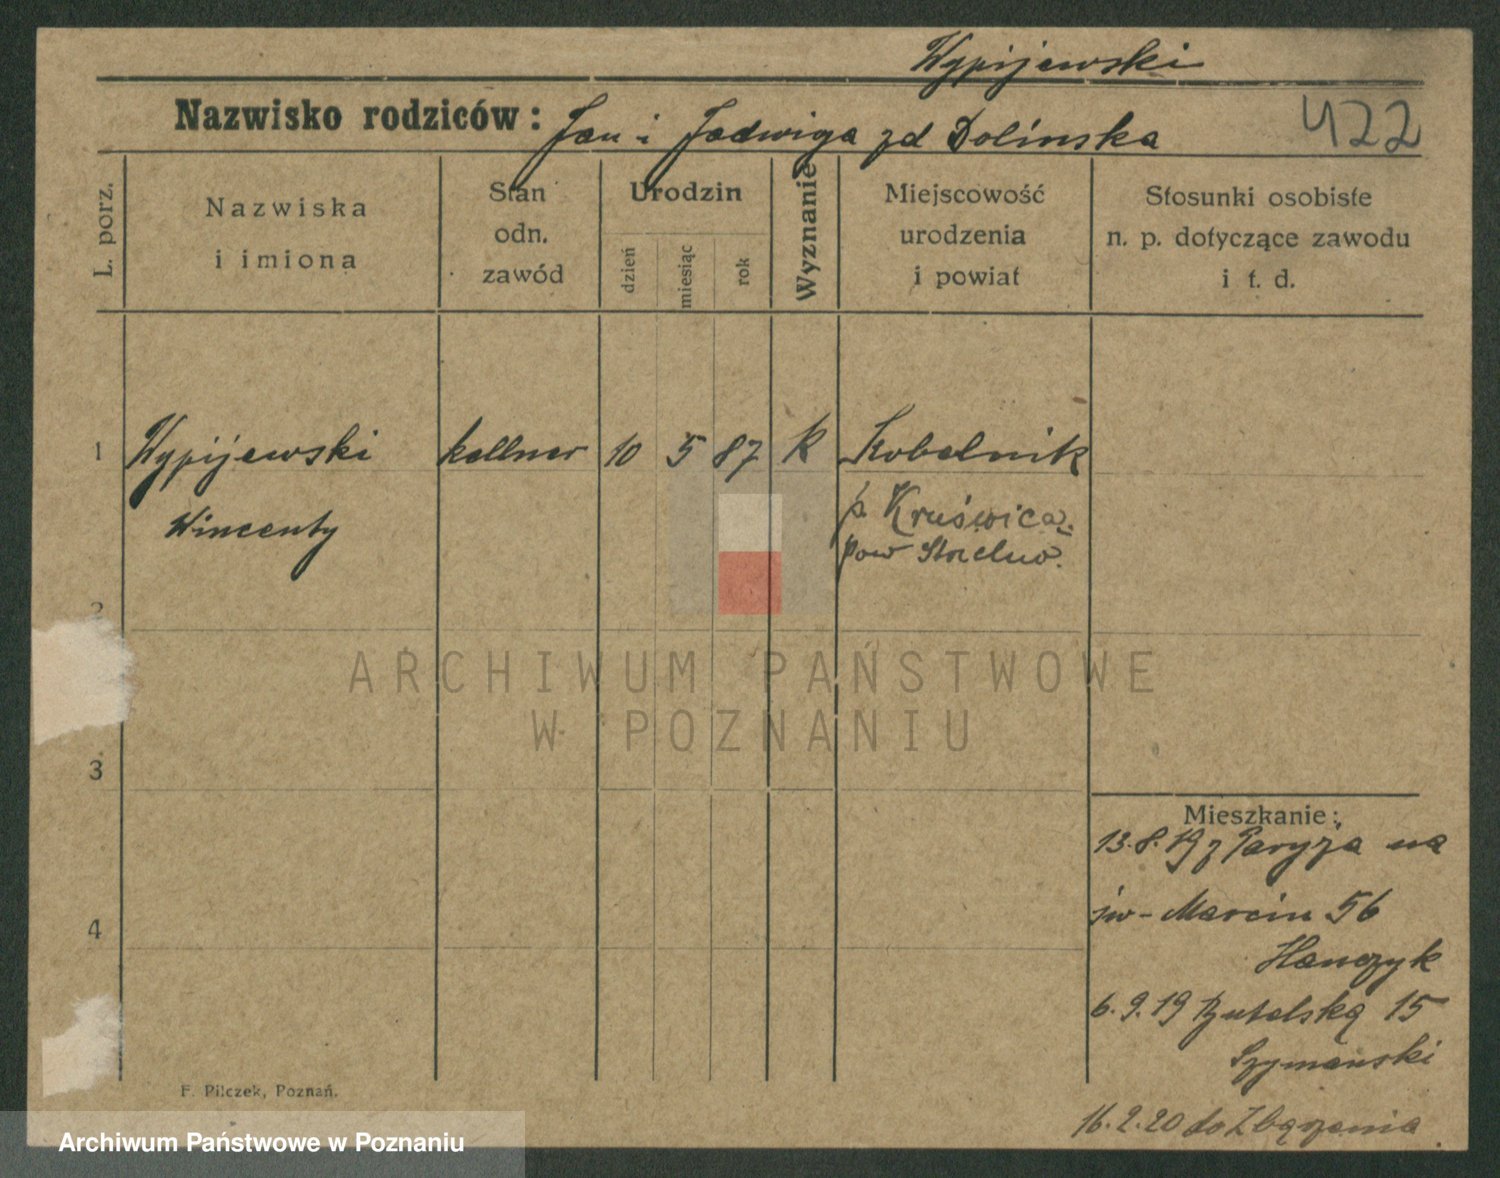 Wypijewski
Nazwisko rodziców: Jan i Jadwiga zd Dolinska
422
L. porz.
Nazwiska
i imiona
Stan
odn.
zawód
Urodzin
dzień
miesiąc
rok
Wyznanie
Miejscowość
urodzenia
i powiat
Stosunki osobiste
n. p. dotyczące zawodu
i t. d.
1 Wypijewski kellner 10 5 87 k Kobelnik
Wincenty
p. Kruświca
pow Strelno.
2
3
4
ARCHIWUM PAŃSTWOWE
W POZNANIU
Mieszkanie:
13.8.19 z Paryża na
św- Marcin 56
Hanczyk
6.9.19 Butelską 15
Szymanski
16.2.20 do Zbąszenia
F. Pilczek, Poznań.
Archiwum Państwowe w Poznaniu